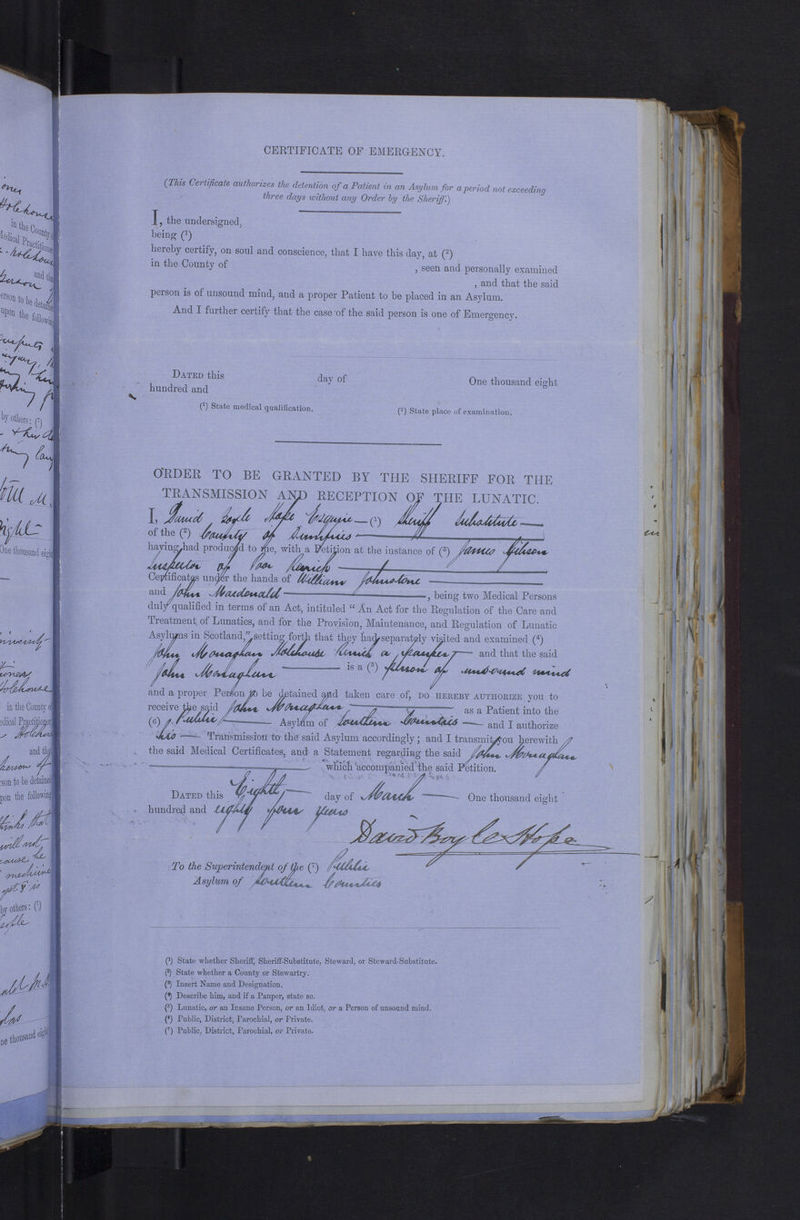 CERTIFICATE OF EMERGENCY.
(This Certificate authorizes the detention of a Patient in an Asylum for a period not exceeding
three days without any Order by the Sheriff.)
I, the undersigned,
being (¹)
hereby certify, on soul and conscience, that I have this day, at (²)
in the County of , seen and personally examined
, and that the said
person is of unsound mind, and a proper Patient to be placed in an Asylum.
And I further certify that the case of the said person is one of Emergency.
DATED this day of One thousand eight
hundred and
(¹) State medical qualification. (²) State place of examination.
ORDER TO BE GRANTED BY THE SHERIFF FOR THE
TRANSMISSION AND RECEPTION OF THE LUNATIC.
I, David Boyle Hope Esquire — (¹) Sheriff Substitute —
of the (²) County of Dumfries —
having had produced to me, with a Petition at the instance of (³) James Gibson
Inspector of Poor Penrich —
Certificates under the hands of William Johnstone —
and John Macdonald — , being two Medical Persons
duly qualified in terms of an Act, intituled “ An Act for the Regulation of the Care and
Treatment of Lunatics, and for the Provision, Maintenance, and Regulation of Lunatic
Asylums in Scotland,” setting forth that they had separately visited and examined (⁴)
John Monaghan Holehouse Penrich a pauper — and that the said
John Monaghan — is a (⁵) person of unsound mind
and a proper Person to be detained and taken care of, DO HEREBY AUTHORIZE you to
receive the said John Monaghan — as a Patient into the
(⁶) Public — Asylum of Southern Counties — and I authorize
his — Transmission to the said Asylum accordingly; and I transmit you herewith
the said Medical Certificates, and a Statement regarding the said John Monaghan
— which accompanied the said Petition.
DATED this Eighth — day of March — One thousand eight
hundred and eighty four years
David Boyle Hope
To the Superintendent of the (⁷) Public
Asylum of Southern Counties
(¹) State whether Sheriff, Sheriff-Substitute, Steward, or Steward-Substitute.
(²) State whether a County or Stewartry.
(³) Insert Name and Designation.
(⁴) Describe him, and if a Pauper, state so.
(⁵) Lunatic, or an Insane Person, or an Idiot, or a Person of unsound mind.
(⁶) Public, District, Parochial, or Private.
(⁷) Public, District, Parochial, or Private.